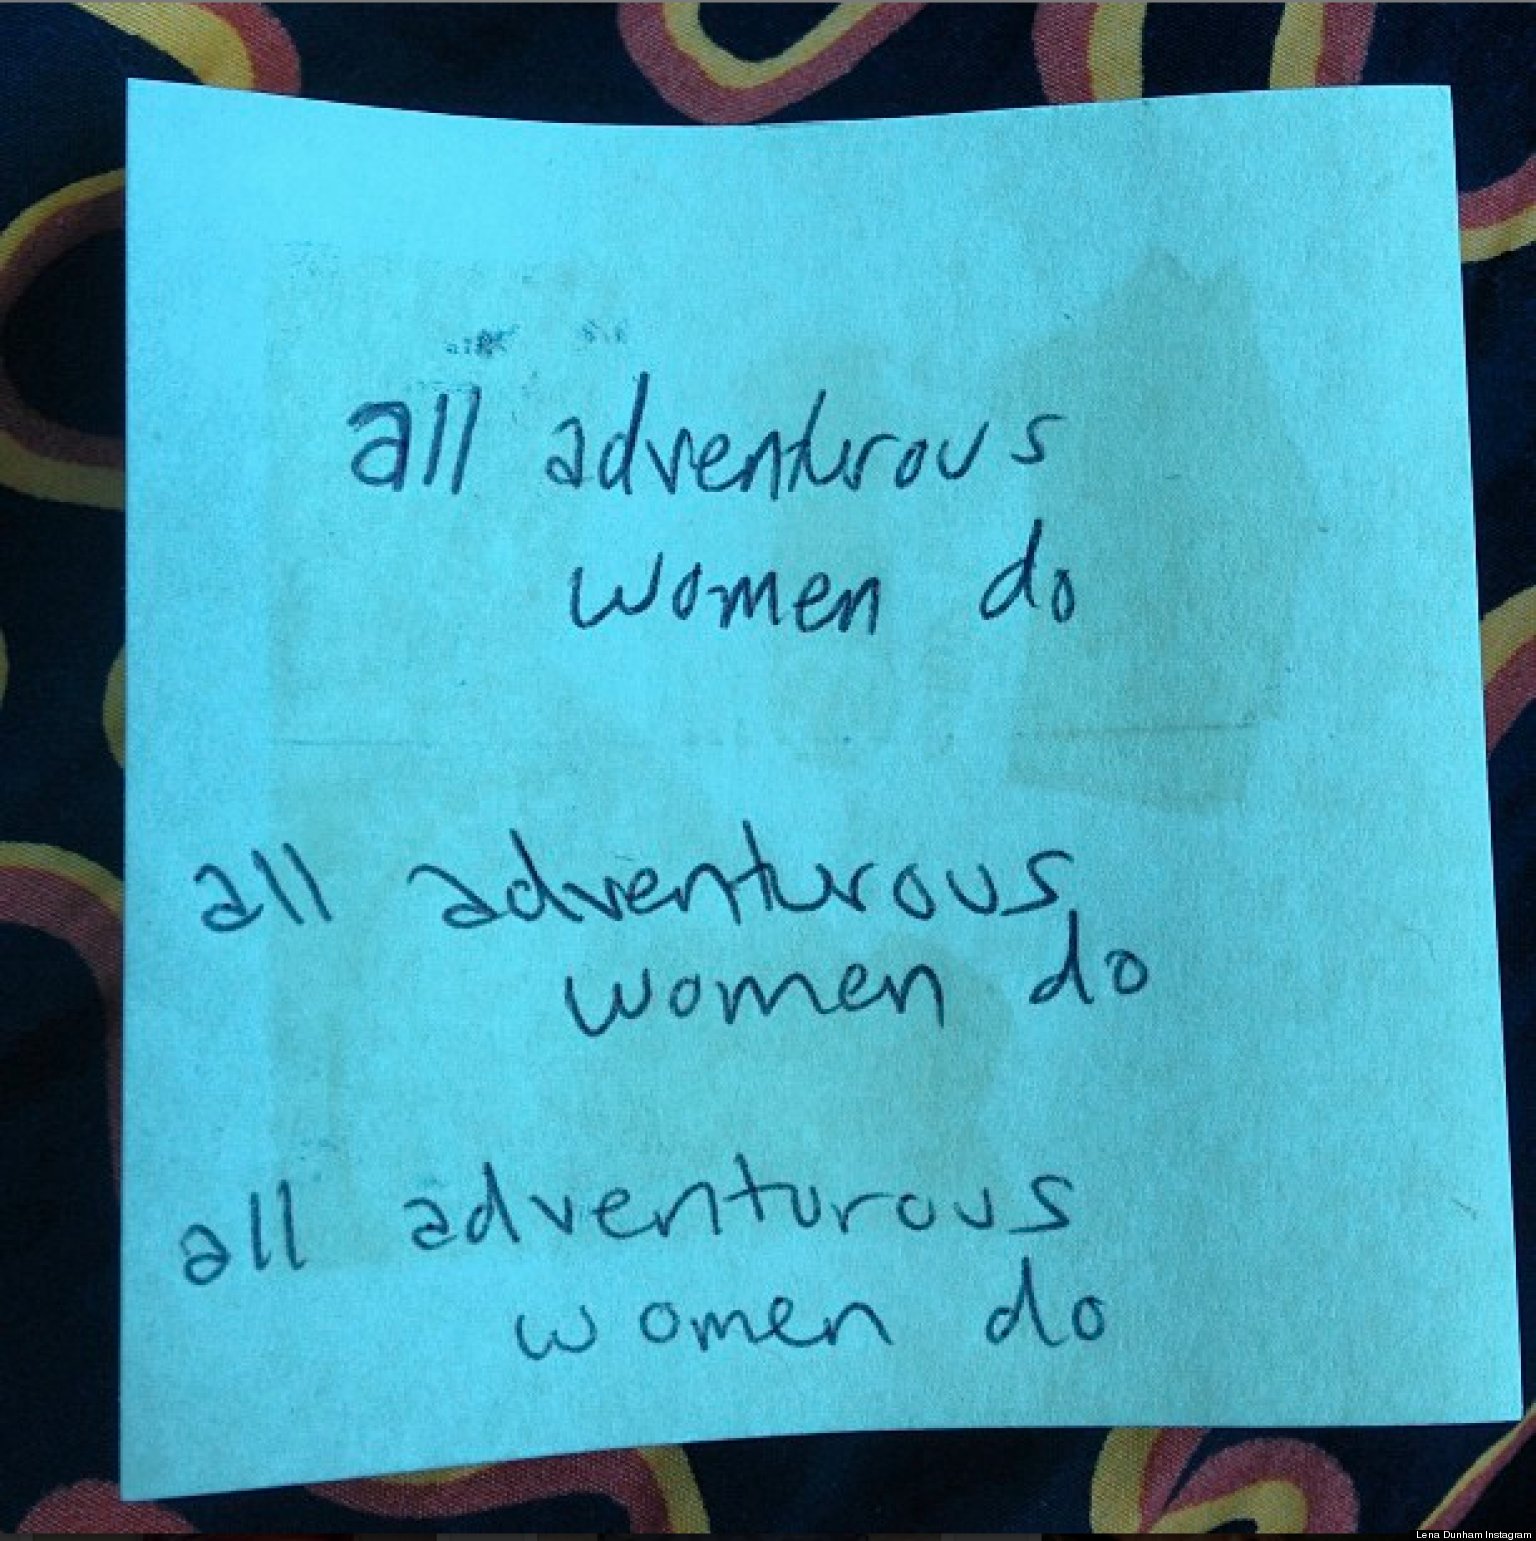 all adventurous
women do
all adventurous
women do
all adventurous
women do
Lena Dunham Instagram